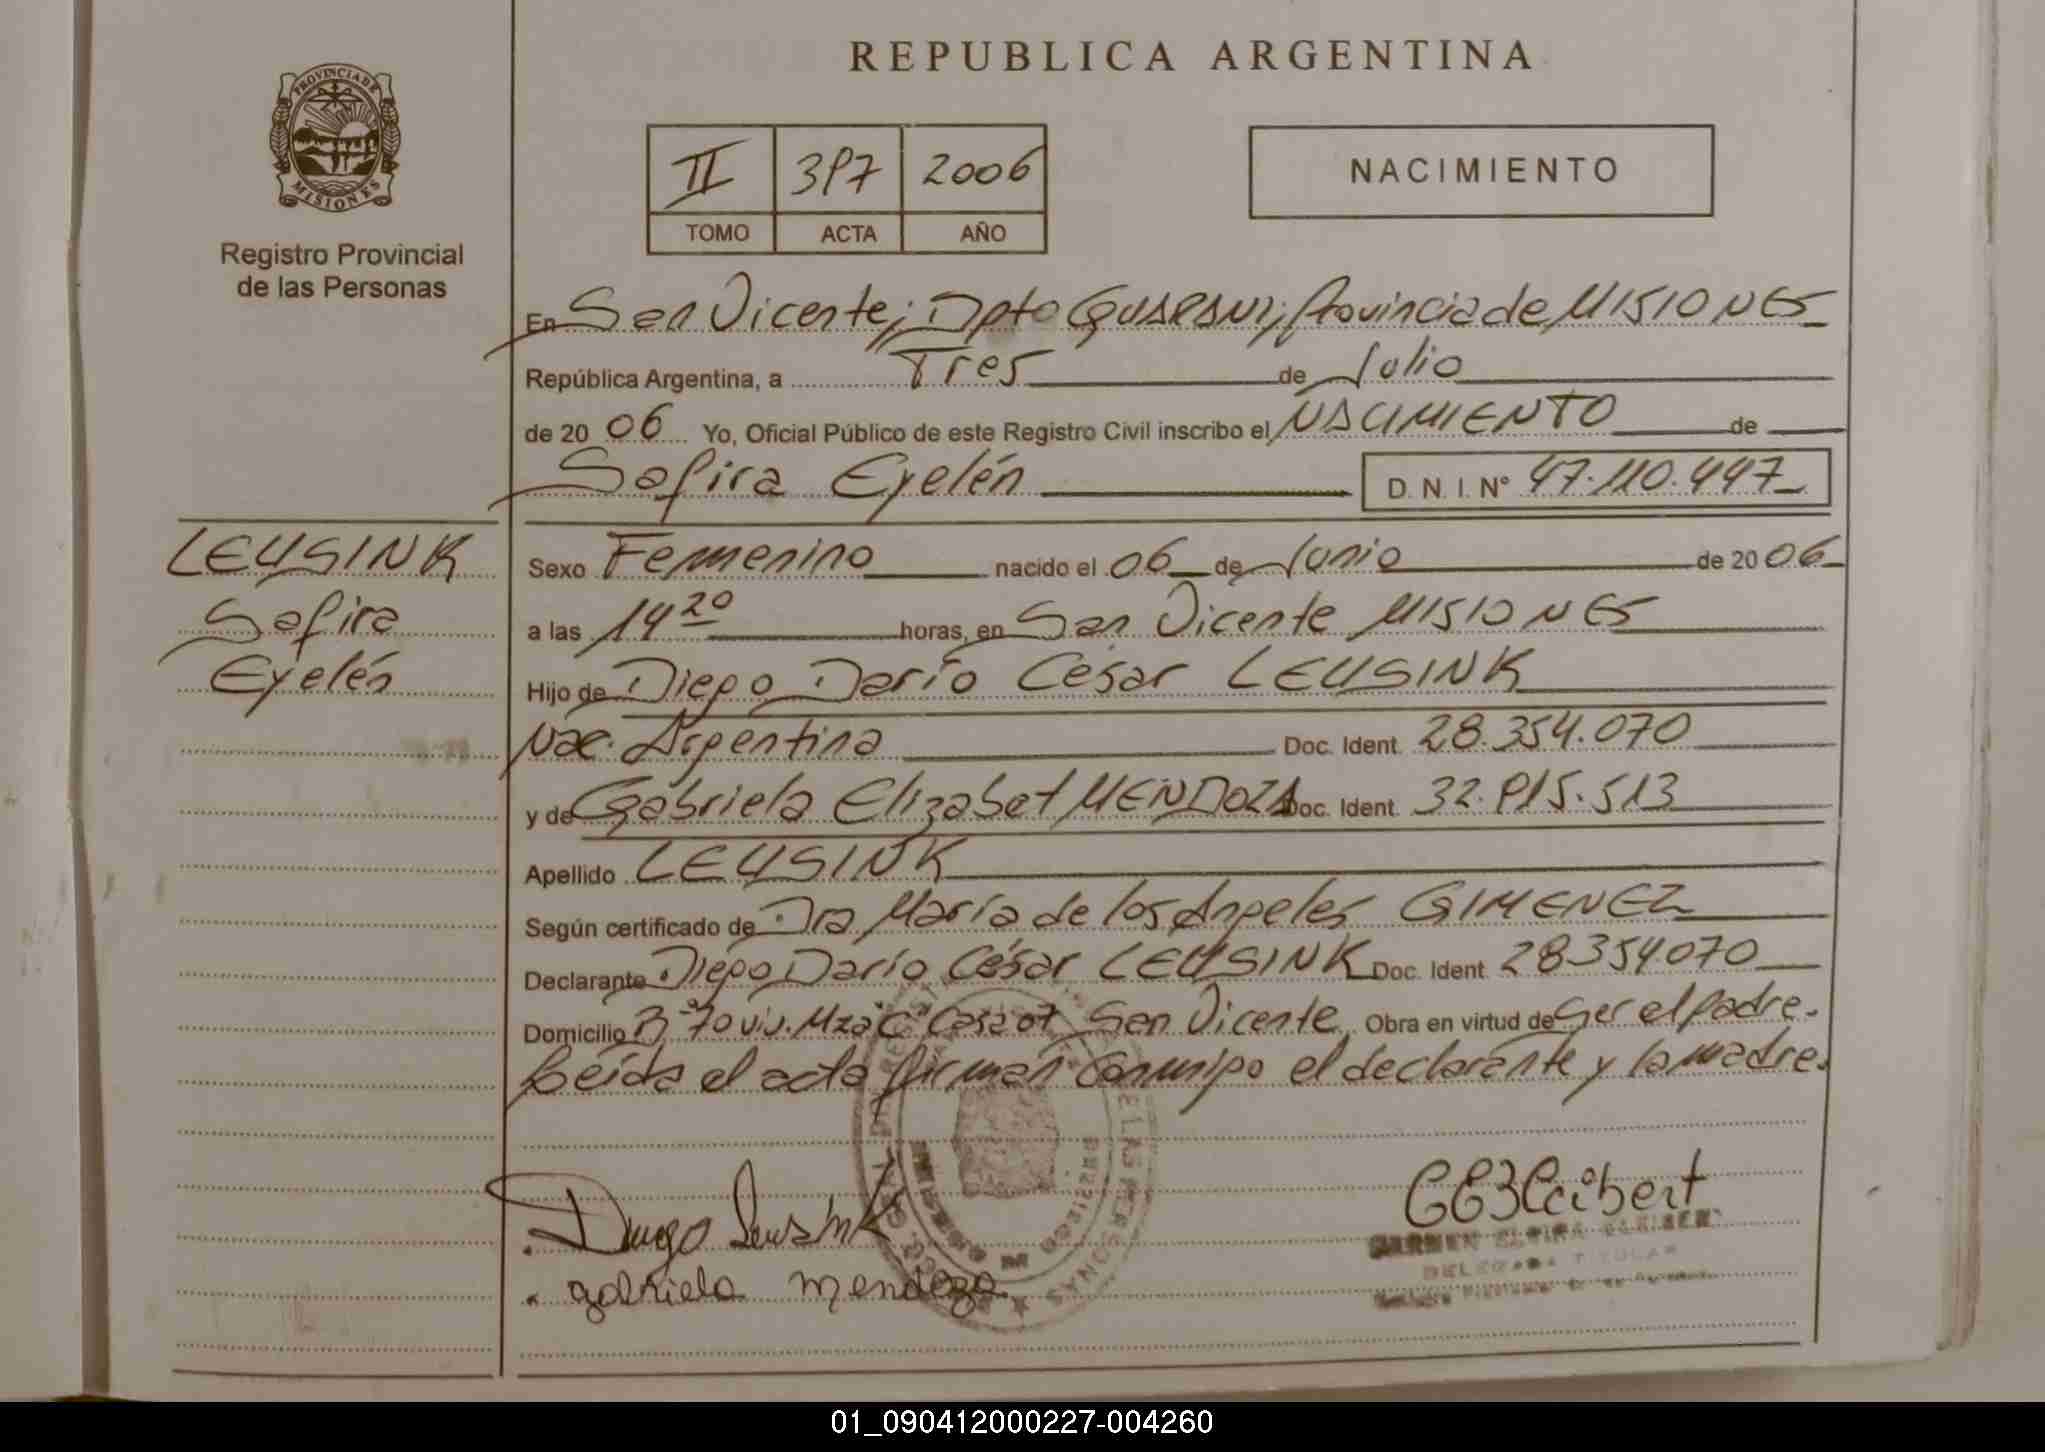 PROVINCIA DE
MISIONES
Registro Provincial
de las Personas
REPUBLICA ARGENTINA
II 397 2006
TOMO ACTA AÑO
NACIMIENTO
En San Vicente; Dpto GUARANI; Provincia de MISIONES
República Argentina, a Tres de Julio
de 20 06 Yo, Oficial Público de este Registro Civil inscribo el NACIMIENTO de
Safira Eyelén D. N. I. N° 47.110.447
LEUSINK
Safira
Eyelén
Sexo Femenino nacido el 06 de Junio de 20 06
a las 14 20 horas, en San Vicente MISIONES
Hijo de Diego Darío César LEUSINK
Nac. Argentina Doc. Ident. 28.354.070
y de Gabriela Elizabet MENDOZA Doc. Ident. 32.915.513
Apellido LEUSINK
Según certificado de Dra María de los Angeles GIMENEZ
Declarante Diego Darío César LEUSINK Doc. Ident. 28354070
Domicilio B° 70 viv. Mza "C" Casa 07 San Vicente Obra en virtud de Ser el padre.
Leída el acta firman conmigo el declarante y la madre.
Diego Leusink
gabriela mendoza
DELEGADA TITULAR
01_090412000227-004260